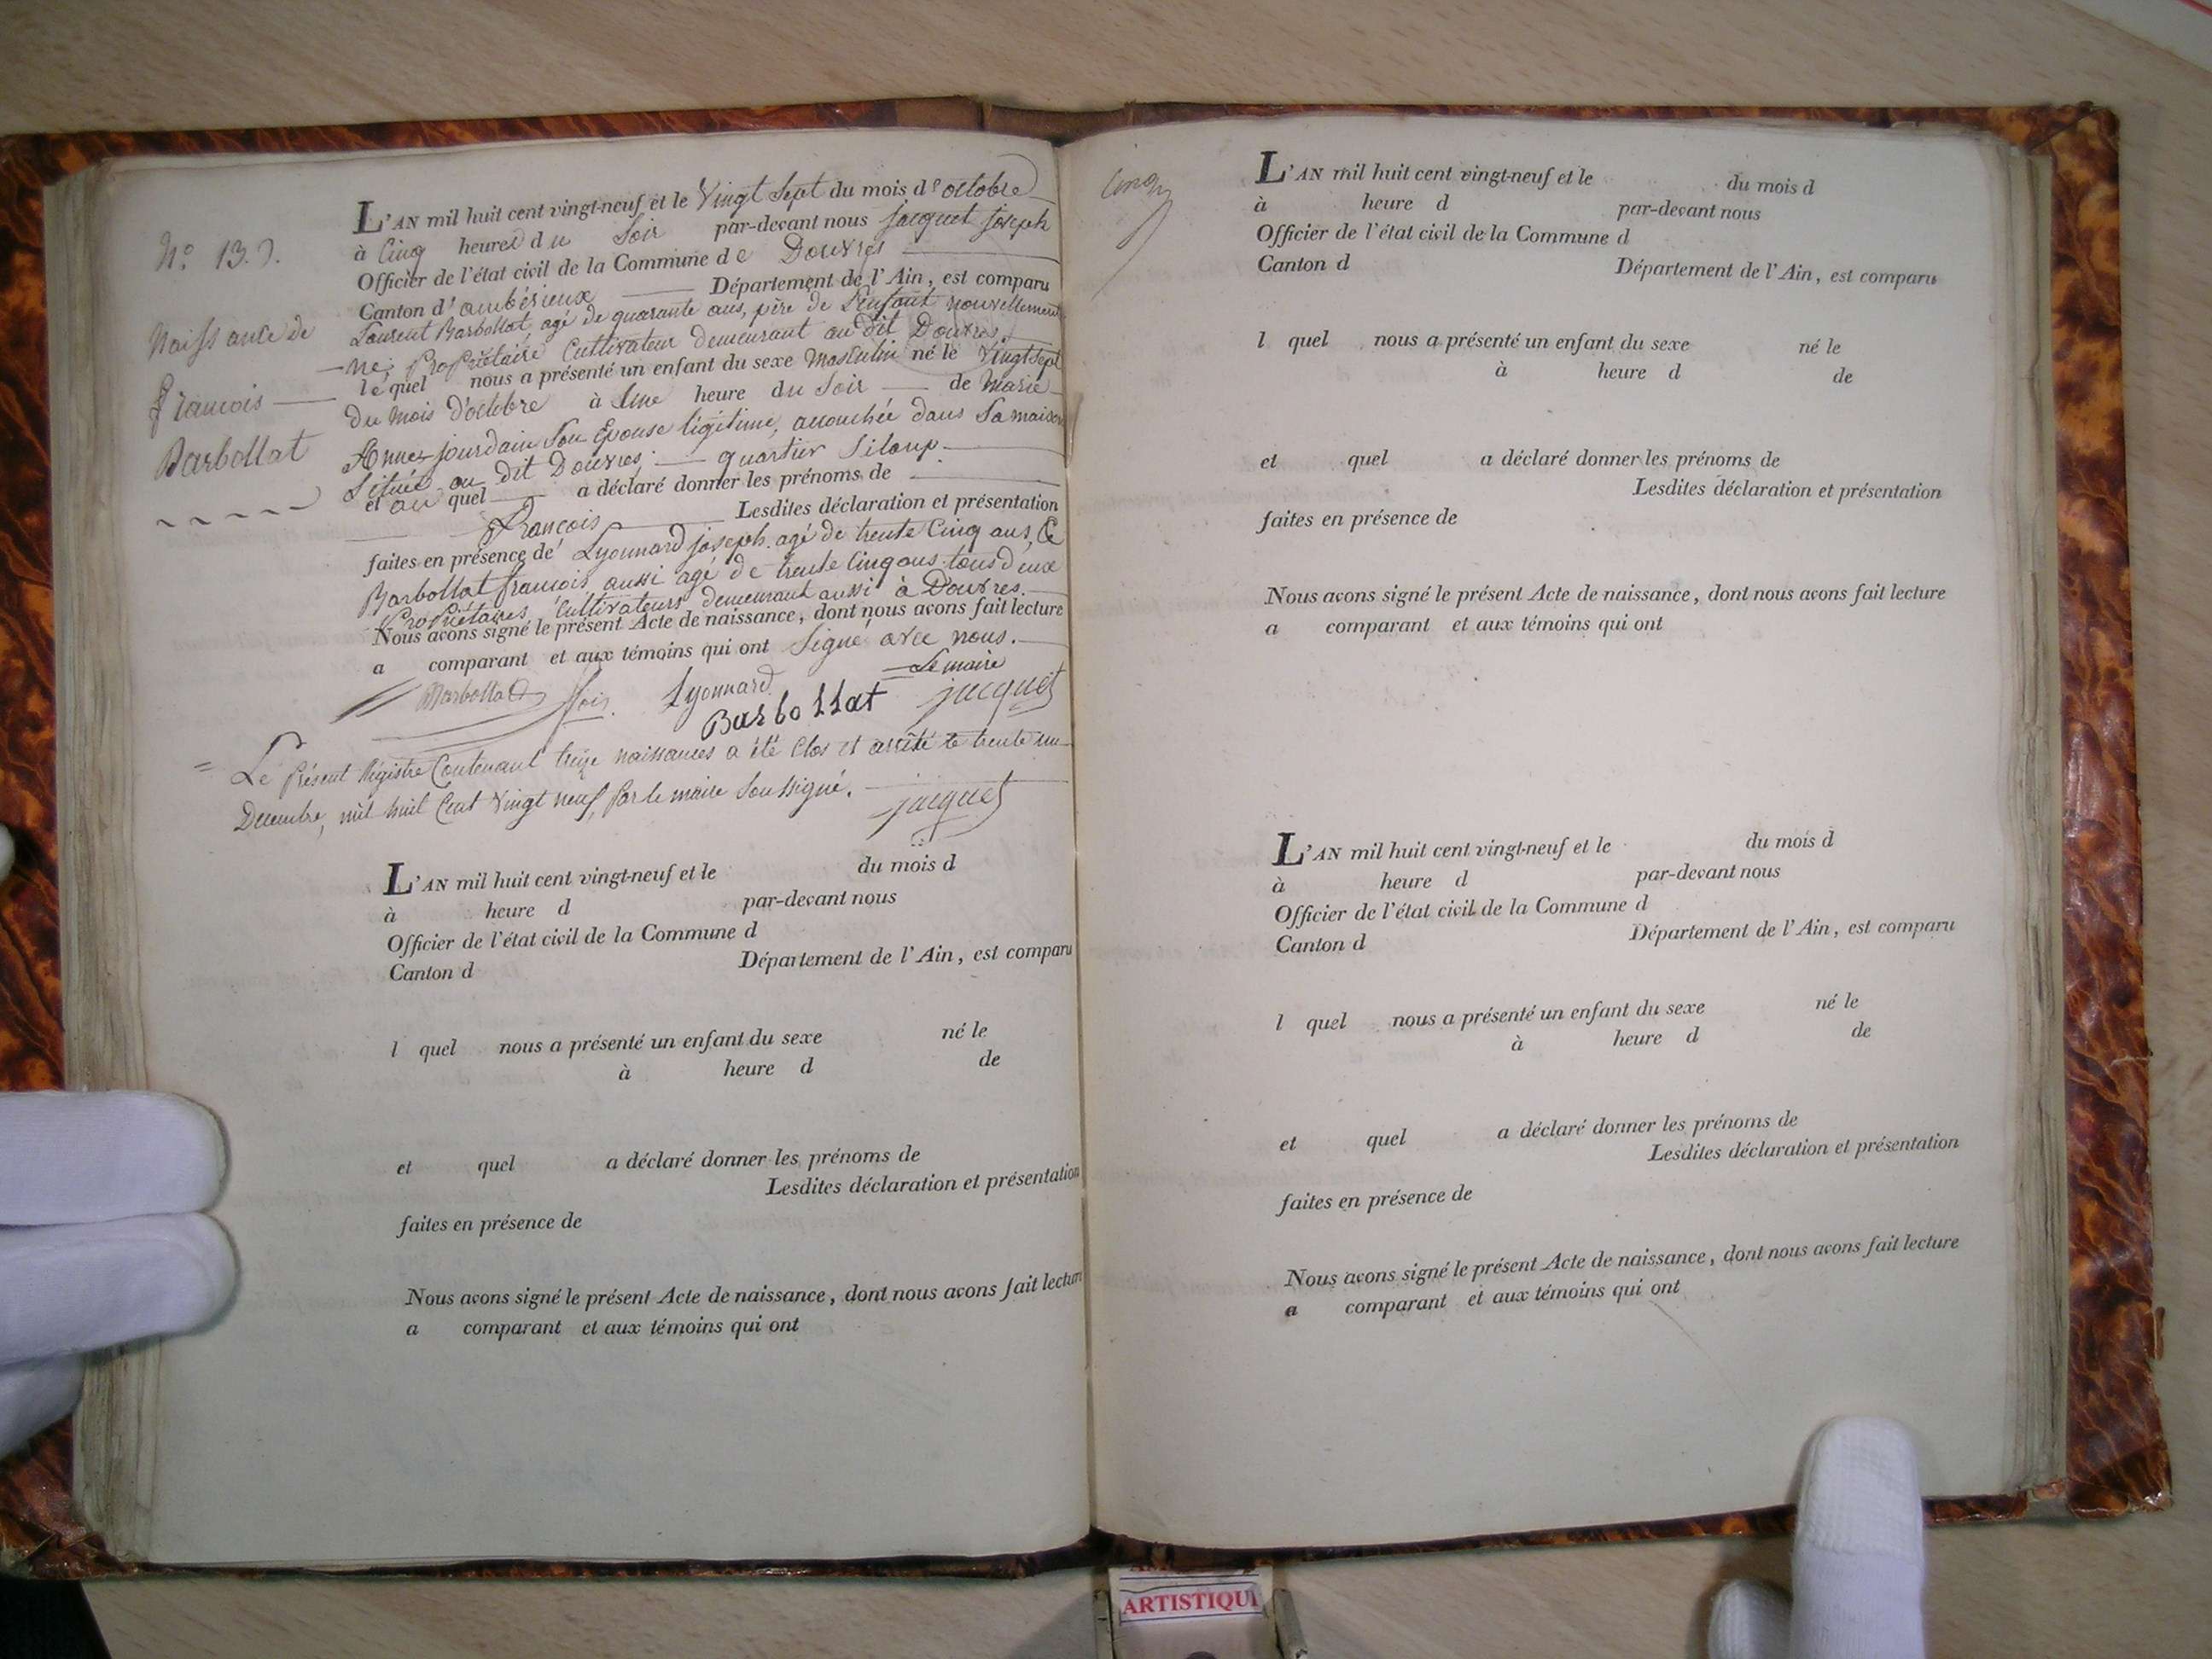 N.º 13.
Naissance de
francois
Barbollat
L'AN mil huit cent vingt-neuf et le Vingt Sept du mois d'octobre
à Cinq heures du Soir par-devant nous jacquet joseph
Officier de l'état civil de la Commune de Douvres
Canton d'ambérieux Département de l'Ain, est comparu
Laurent Barbollat, agé de quarante ans, père de L'enfant nouvellement
né; Propriétaire Cultivateur demeurant au dit Douvres.
lequel nous a présenté un enfant du sexe masculin né le Vingt Sept
du mois d'octobre à Une heure du Soir de Marie
Anne jourdain Son Epouse légitime, accouchée dans Sa maison
Située au dit Douvres. quartier Siloup
et au quel a déclaré donner les prénoms de
François Lesdites déclaration et présentation
faites en présence de Lyonnard joseph. agé de trente Cinq ans, Ce
Barbollat francois, aussi agé de trente Cinq ans. tous deux
Propriétaires, Cultivateurs demeurant aussi à Douvres.
Nous avons signé le présent Acte de naissance, dont nous avons fait lecture
a comparant et aux témoins qui ont Signé avec nous.
Le maire
Barbollat fois. Lyonnard jacquet
Barbollat
= Le Présent Régistre Contenant treize naissances a été Clos et arrêté le trente un
Decembre, mil huil Cent Vingt neuf, par le maire Soussigné.
jacquet
L'AN mil huit cent vingt-neuf et le du mois d
à heure d par-devant nous
Officier de l'état civil de la Commune d
Canton d Département de l'Ain, est comparu
l quel nous a présenté un enfant du sexe né le
à heure d de
et quel a déclaré donner les prénoms de
Lesdites déclaration et présentation
faites en présence de
Nous avons signé le présent Acte de naissance, dont nous avons fait lecture
a comparant et aux témoins qui ont
Cinq
L'AN mil huit cent vingt-neuf et le du mois d
à heure d par-devant nous
Officier de l'état civil de la Commune d
Canton d Département de l'Ain, est comparu
l quel nous a présenté un enfant du sexe né le
à heure d de
et quel a déclaré donner les prénoms de
Lesdites déclaration et présentation
faites en présence de
Nous avons signé le présent Acte de naissance, dont nous avons fait lecture
a comparant et aux témoins qui ont
L'AN mil huit cent vingt-neuf et le du mois d
à heure d par-devant nous
Officier de l'état civil de la Commune d
Canton d Département de l'Ain, est comparu
l quel nous a présenté un enfant du sexe né le
à heure d de
et quel a déclaré donner les prénoms de
Lesdites déclaration et présentation
faites en présence de
Nous avons signé le présent Acte de naissance, dont nous avons fait lecture
a comparant et aux témoins qui ont
ARTISTIQU